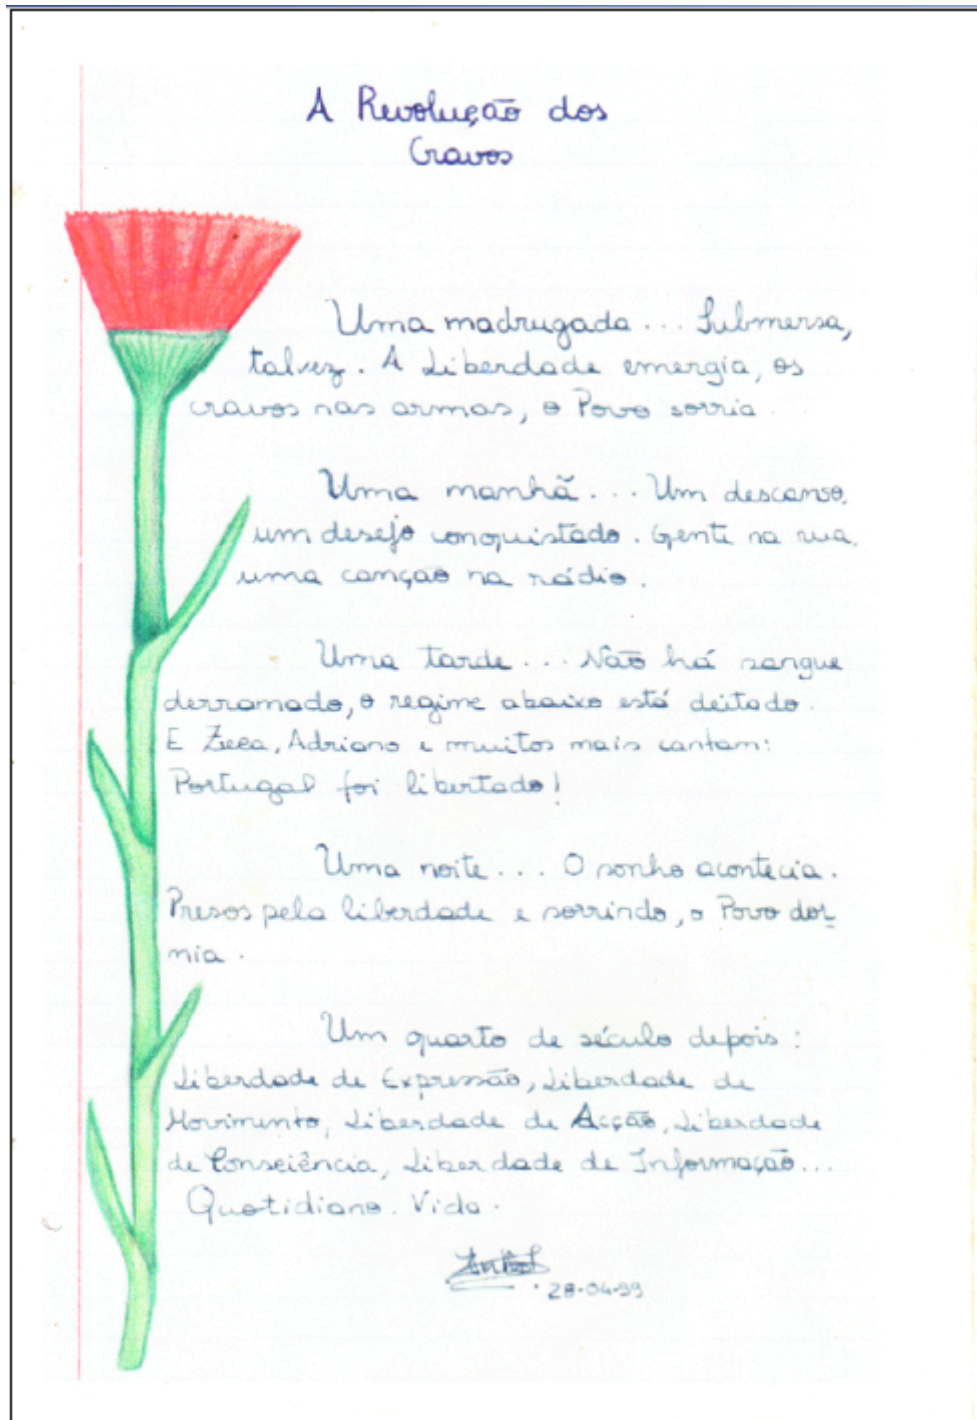 A Revolução dos
Cravos
Uma madrugada... Submersa,
talvez. A Liberdade emergia, os
cravos nas armas, o Povo sorria.
Uma manhã... Um descanso,
um desejo conquistado. Gente na rua,
uma canção na rádio.
Uma tarde... Não há sangue
derramado, o regime abaixo está deitado.
E Zeca, Adriano e muitos mais cantam:
Portugal foi libertado!
Uma noite... O sonho acontecia.
Presos pela liberdade e sorrindo, o Povo dor-
mia.
Um quarto de século depois:
Liberdade de Expressão, Liberdade de
Movimento, Liberdade de Acção, Liberdade
de Consciência, Liberdade de Informação...
Quotidiano. Vida.
28-04-99